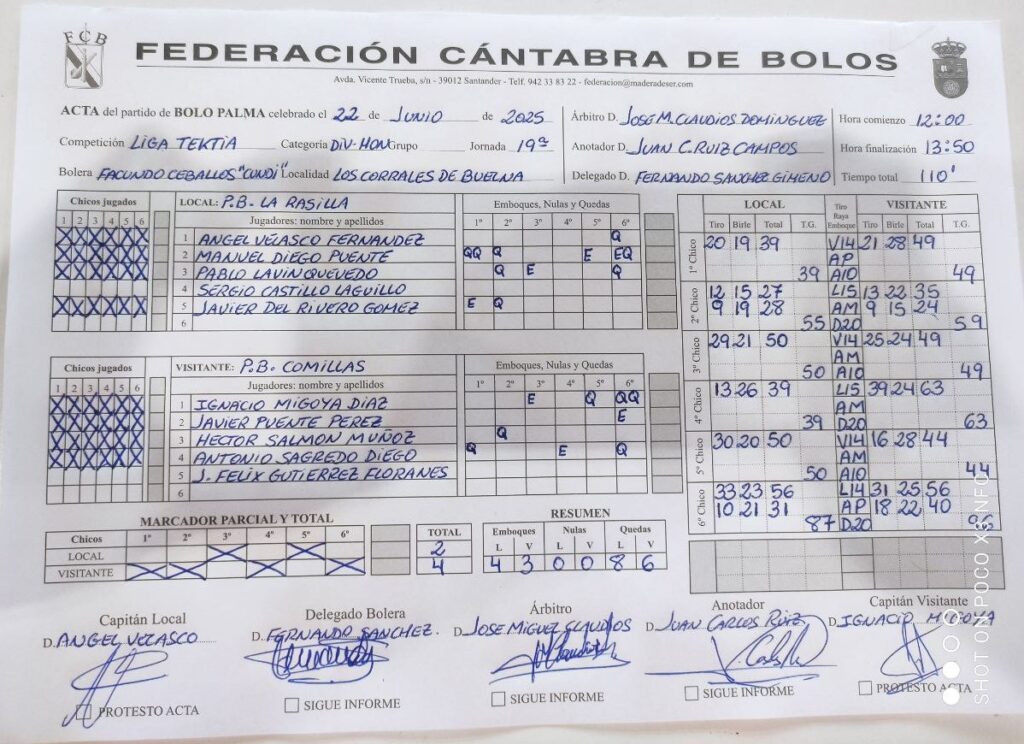 FCB
FEDERACIÓN CÁNTABRA DE BOLOS
Avda. Vicente Trueba, s/n - 39012 Santander - Telf. 942 33 83 22 - federacion@maderadeser.com
ACTA del partido de BOLO PALMA celebrado el 22 de JUNIO de 2025
Competición LIGA TEKTIA Categoría DIV-HON Grupo Jornada 19ª
Bolera FACUNDO CEBALLOS "CUNDI" Localidad LOS CORRALES DE BUELNA
Árbitro D. JOSE M. CLAUDIOS DOMINGUEZ Hora comienzo 12:00
Anotador D. JUAN C. RUIZ CAMPOS Hora finalización 13:50
Delegado D. FERNANDO SANCHEZ GIMENO Tiempo total 110'
Chicos jugados LOCAL: P.B. LA RASILLA Emboques, Nulas y Quedas
1 2 3 4 5 6 Jugadores: nombre y apellidos 1º 2º 3º 4º 5º 6º
X X X X X X 1 ANGEL VELASCO FERNANDEZ Q
X X X X X X 2 MANUEL DIEGO PUENTE QQ Q E EQ
X X X X X X 3 PABLO LAVIN QUEVEDO Q E Q
4 SERGIO CASTILLO LAGUILLO
X X X X X X 5 JAVIER DEL RIVERO GOMEZ E Q
6
Chicos jugados VISITANTE: P.B. COMILLAS Emboques, Nulas y Quedas
1 2 3 4 5 6 Jugadores: nombre y apellidos 1º 2º 3º 4º 5º 6º
X X X X X X 1 IGNACIO MIGOYA DIAZ E Q QQ
X X X X X X 2 JAVIER PUENTE PEREZ E
X X X X X X 3 HECTOR SALMON MUÑOZ Q
X X X X X X 4 ANTONIO SAGREDO DIEGO Q E Q
5 J. FELIX GUTIERREZ FLORANES
6
LOCAL Tiro Raya Emboque VISITANTE
Tiro Birle Total T.G. Tiro Birle Total T.G.
1º Chico 20 19 39 V14 21 28 49
AP
39 A10 49
2º Chico 12 15 27 L15 13 22 35
9 19 28 AM 9 15 24
55 D20 59
3º Chico 29 21 50 V14 25 24 49
AM
50 A10 49
4º Chico 13 26 39 L15 39 24 63
AM
39 D20 63
5º Chico 30 20 50 V14 16 28 44
AM
50 A10 44
6º Chico 33 23 56 L14 31 25 56
10 21 31 AP 18 22 40
87 D20 96
MARCADOR PARCIAL Y TOTAL
Chicos 1º 2º 3º 4º 5º 6º TOTAL
LOCAL X X 2
VISITANTE X X X X 4
RESUMEN
Emboques Nulas Quedas
L V L V L V
4 3 0 0 8 6
Capitán Local Delegado Bolera Árbitro Anotador Capitán Visitante
D. ANGEL VELASCO D. FERNANDO SANCHEZ. D. JOSE MIGUEL CLAUDIOS D. JUAN CARLOS RUIZ D. IGNACIO MIGOYA
PROTESTO ACTA SIGUE INFORME SIGUE INFORME SIGUE INFORME PROTESTO ACTA
SHOT ON POCO X6 NFC